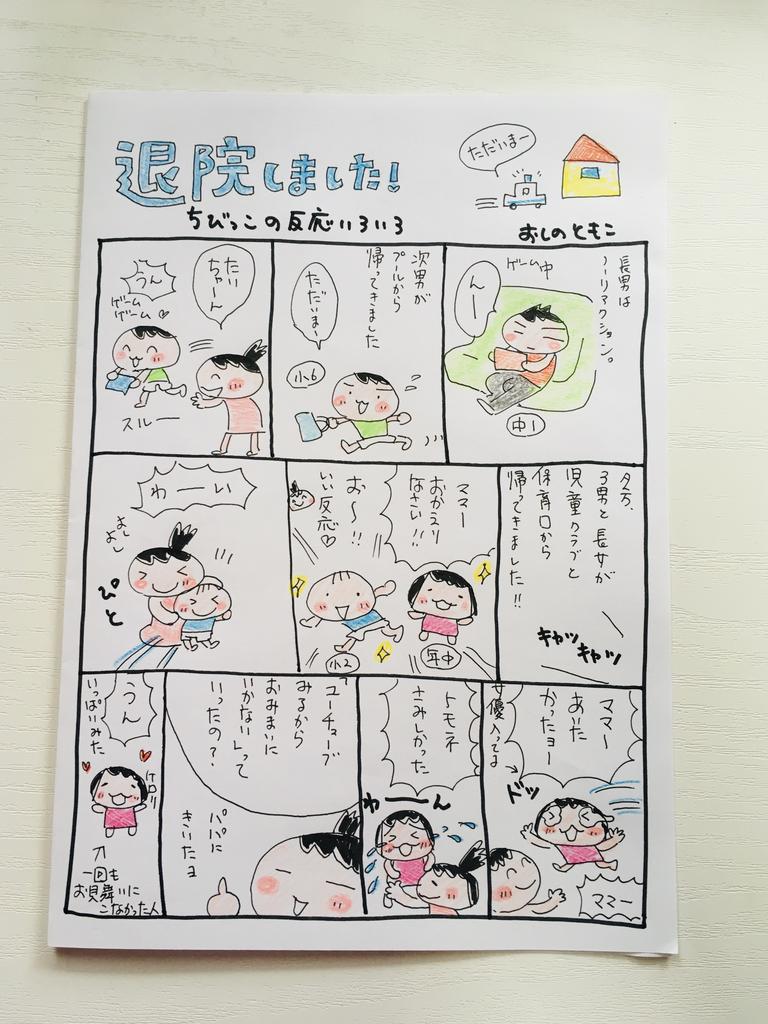 退院しました!
ちびっこの反応いろいろ
ただいまー
おしのともこ
長男は
ノーリアクション。
ゲーム中
んー
中1
次男が
プールから
帰ってきました
ただいま〜
小6
たい
ちゃーん
うん
ゲーム
ゲーム♡
スルー
夕方、
3男と長女が
児童クラブと
保育口から
帰ってきました!!
キャッ
キャッ
ママー
おかえり
なさい!!
お〜!!
いい反応♡
小2
年中
わーい
よし
よし
ぴと
ママー
あいた
かったヨー
女優入ってる
ドッ
ママー
トモネ
さみしかった
わーん
「ユーチューブ
みるから
おみまいに
いかない」って
いったの?
パパに
きいたョ
うん
いっぱいみた
ケロリ
一回も
お見舞いに
こなかった人